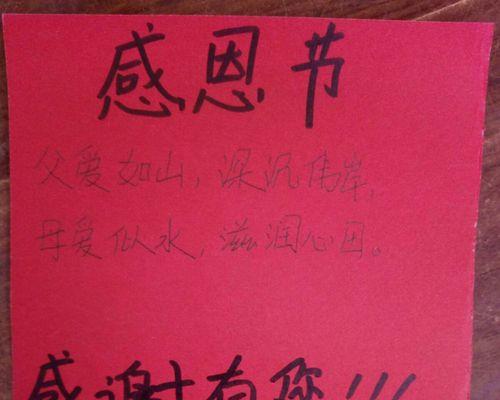 感恩节
父爱如山，深沉伟岸，
母爱似水，滋润心田。
感谢有你!!!